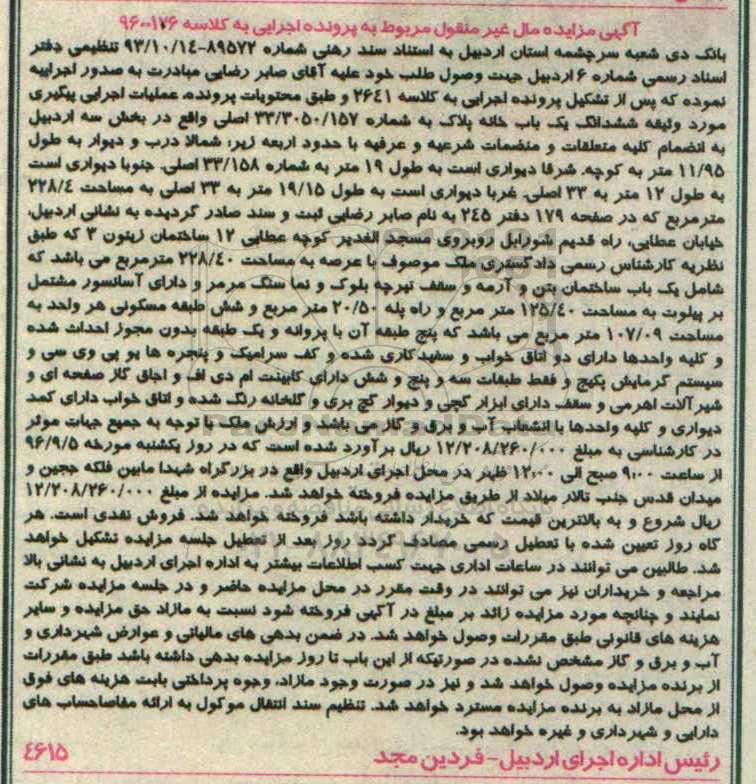 آگهی مزایده مال غیر منقول مربوط به پرونده اجرایی به کلاسه ۹۶۰۰۱۷۶
بانک دی شعبه سرچشمه استان اردبیل به استناد سند رهنی شماره ۸۹۵۷۲-۹۳/۱۰/۱۴ تنظیمی دفتر
اسناد رسمی شماره ۶ اردبیل جهت وصول طلب خود علیه آقای صابر رضایی مبادرت به صدور اجراییه
نموده که پس از تشکیل پرونده اجرایی به کلاسه ۲۶۴۱ و طبق محتویات پرونده، عملیات اجرایی پیگیری
مورد وثیقه ششدانگ یک باب خانه پلاک به شماره ۳۳/۳۰۵۰/۱۵۷ اصلی واقع در بخش سه اردبیل
به انضمام کلیه متعلقات و منضمات شرعیه و عرفیه با حدود اربعه زیر: شمالا درب و دیوار به طول
۱۱/۹۵ متر به کوچه. شرقا دیواری است به طول ۱۹ متر به شماره ۳۳/۱۵۸ اصلی. جنوبا دیواری است
به طول ۱۲ متر به ۳۳ اصلی. غربا دیواری است به طول ۱۹/۱۵ متر به ۳۳ اصلی به مساحت ۲۲۸/۴
مترمربع که در صفحه ۱۷۹ دفتر ۲۴۵ به نام صابر رضایی ثبت و سند صادر گردیده به نشانی اردبیل،
خیابان عطایی، راه قدیم شورابل روبروی مسجد الغدیر کوچه عطایی ۱۲ ساختمان زیتون ۳ که طبق
نظریه کارشناس رسمی دادگستری ملک موصوف با عرصه به مساحت ۲۲۸/۴۰ مترمربع می باشد که
شامل یک باب ساختمان بتن و آرمه و سقف تیرچه بلوک و نما سنگ مرمر و دارای آسانسور مشتمل
بر پیلوت به مساحت ۱۲۵/۴۰ متر مربع و راه پله ۲۰/۵۰ متر مربع و شش طبقه مسکونی هر واحد به
مساحت ۱۰۷/۰۹ متر مربع می باشد که پنج طبقه آن با پروانه و یک طبقه بدون مجوز احداث شده
و کلیه واحدها دارای دو اتاق خواب و سفیدکاری شده و کف سرامیک و پنجره ها یو پی وی سی و
سیستم گرمایش پکیج و فقط طبقات سه و پنج و شش دارای کابینت ام دی اف و اجاق گاز صفحه ای و
شیرآلات اهرمی و سقف دارای ابزار گچی و دیوار گچ بری و گلخانه رنگ شده و اتاق خواب دارای کمد
دیواری و کلیه واحدها با انشعاب آب و برق و گاز می باشد و ارزش ملک با توجه به جمیع جهات موثر
در کارشناسی به مبلغ ۱۲/۲۰۸/۲۶۰/۰۰۰ ریال برآورد شده است که در روز یکشنبه مورخه ۹۶/۹/۵
از ساعت ۹:۰۰ صبح الی ۱۲:۰۰ ظهر در محل اجرای اردبیل واقع در بزرگراه شهدا مابین فلکه ججین و
میدان قدس جنب تالار میلاد از طریق مزایده فروخته خواهد شد. مزایده از مبلغ ۱۲/۲۰۸/۲۶۰/۰۰۰
ریال شروع و به بالاترین قیمت که خریدار داشته باشد فروخته خواهد شد. فروش نقدی است. هر
گاه روز تعیین شده با تعطیل رسمی مصادف گردد روز بعد از تعطیل جلسه مزایده تشکیل خواهد
شد. طالبین می توانند در ساعات اداری جهت کسب اطلاعات بیشتر به اداره اجرای اردبیل به نشانی بالا
مراجعه و خریداران نیز می توانند در وقت مقرر در محل مزایده حاضر و در جلسه مزایده شرکت
نمایند و چنانچه مورد مزایده زائد بر مبلغ در آگهی فروخته شود نسبت به مازاد حق مزایده و سایر
هزینه های قانونی طبق مقررات وصول خواهد شد. در ضمن بدهی های مالیاتی و عوارض شهرداری و
آب و برق و گاز مشخص نشده در صورتیکه از این باب تا روز مزایده بدهی داشته باشد طبق مقررات
از برنده مزایده وصول خواهد شد و نیز در صورت وجود مازاد، وجوه پرداختی بابت هزینه های فوق
از محل مازاد به برنده مزایده مسترد خواهد شد. تنظیم سند انتقال موکول به ارائه مفاصاحساب های
دارایی و شهرداری و غیره خواهد بود.
رئیس اداره اجرای اردبیل- فردین مجد
۴۶۱۵